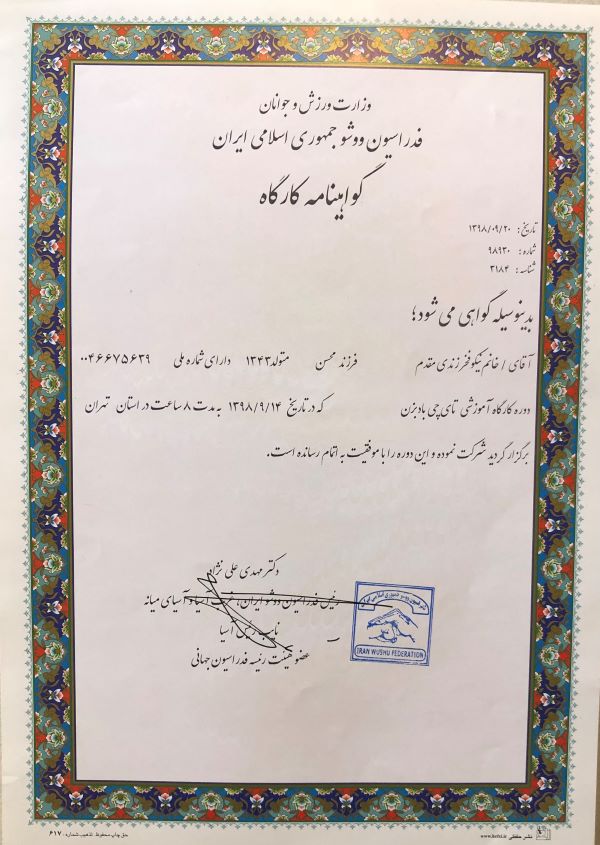 وزارت ورزش و جوانان
فدراسیون ووشو جمهوری اسلامی ایران
گواهینامه کارگاه
تاریخ: ۱۳۹۸/۰۹/۲۰
شماره: ۹۸۹۳۰
شناسه: ۳۱۸۴
بدینوسیله گواهی می شود؛
آقای / خانم نیکو فخر زندی مقدم فرزند محسن متولد ۱۳۴۳ دارای شماره ملی ۰۰۴۶۶۷۵۶۳۹
دوره کارگاه آموزشی تای چی بادبزن که در تاریخ ۱۳۹۸/۹/۱۴ به مدت ۸ ساعت در استان تهران
برگزار گردید شرکت نموده و این دوره را با موفقیت به اتمام رسانده است.
دکتر مهدی علی نژاد
رئیس فدراسیون ووشو ایران، آسیای میانه
نایب رئیس آسیا
عضو هیئت رئیسه فدراسیون جهانی
فدراسیون ووشو جمهوری اسلامی ایران
IRAN WUSHU FEDERATION
حق چاپ محفوظ تذهیب شماره: ۶۱۷
نشر حافظی www.hefzi.ir